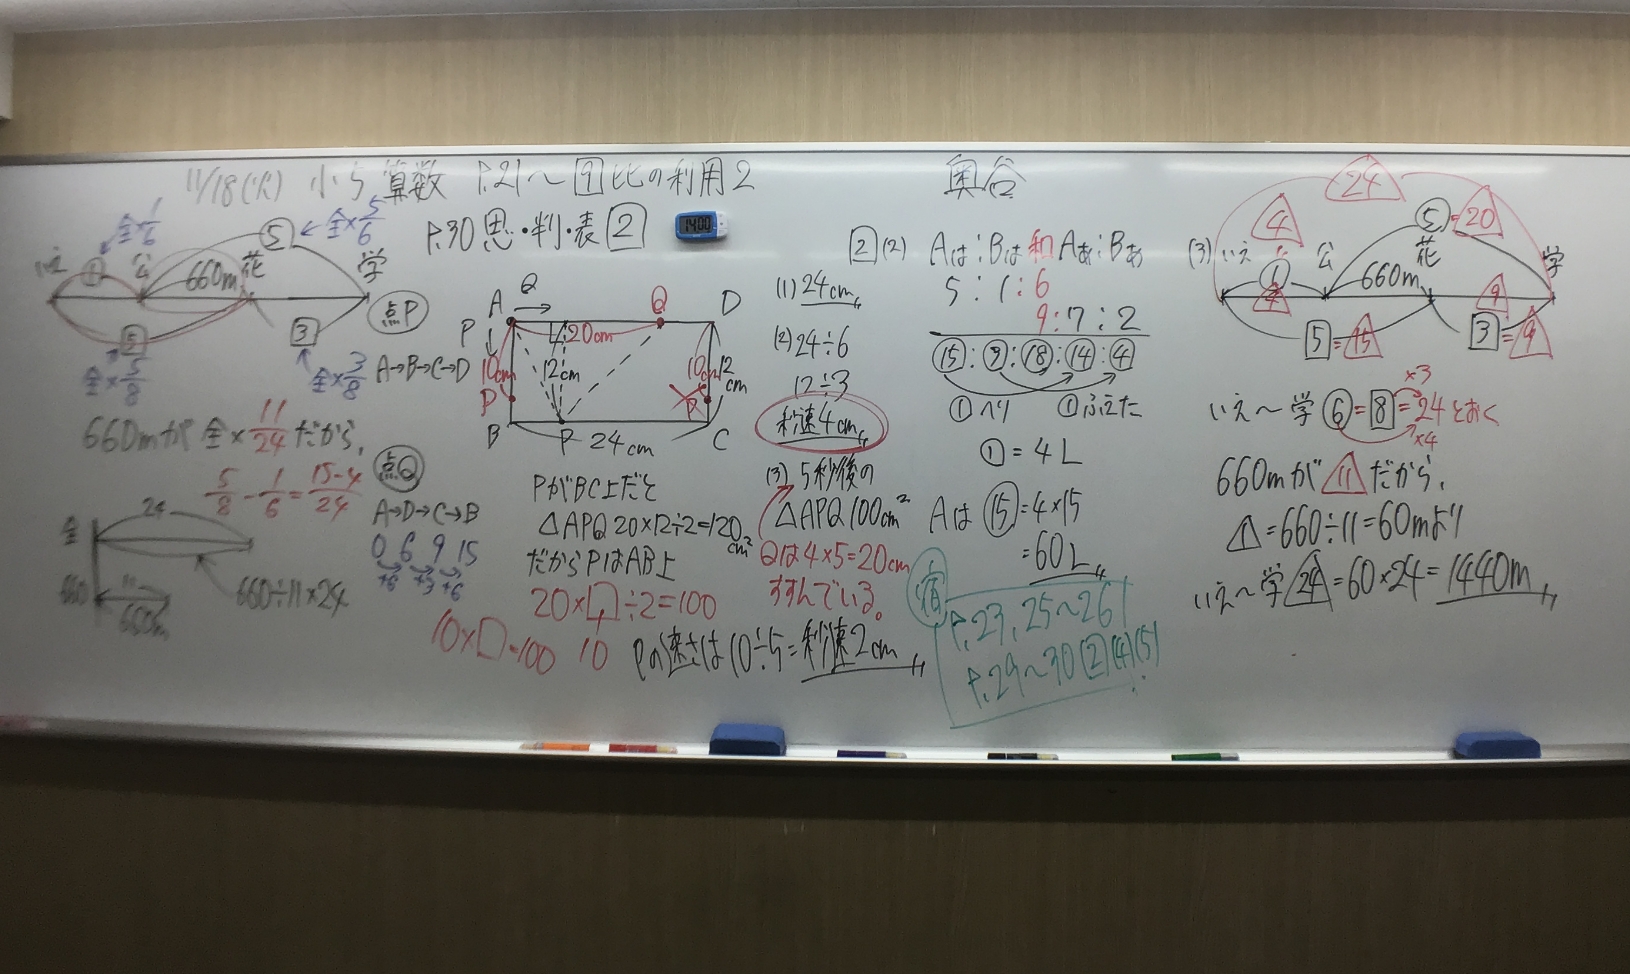 11/18(火) 小5 算数 P.21〜 9 比の利用2
奥谷
P.30 思・判・表 2
14:00
全×1/6
⑤ ← 全×5/6
いえ ① 公 660m 花 学
5 3
全×5/8
全×3/8
660mが 全×11/24 だから、
5/8 - 1/6 = 15-4/24
全 24
660 11 660m
660÷11×24
点P
A→B→C→D
点Q
A→D→C→B
0 6 9 15
+6 +3 +6
A Q → Q D
P ↓ 20cm
10cm 12cm 10cm 12cm
P
B P 24cm C
PがBC上だと
△APQ 20×12÷2=120cm²
だからPはAB上
20×□÷2=100
10×□=100 10
Pの速さは 10÷5=秒速2cm
(1) 24cm
(2) 24÷6
12÷3
秒速4cm
(3) 5秒後の
△APQ 100cm²
Qは 4×5=20cm
すすんでいる。
2 (2) Aは:Bは 和 Aあ:Bあ
5 : 1 : 6
9 : 7 : 2
⑮ : ③ : ⑱ : ⑭ : ④
①へり ①ふえた
① = 4L
Aは ⑮ = 4×15
= 60L
宿
P.23, 25〜26
P.29〜30 (2)(4)(5)
24
4 ⑤=20
(3) いえ ① 公 660m 花 学
4 9
5=15 3=9
×3
いえ〜学 ⑥=8=24 とおく
×4
660mが 11 だから、
1=660÷11=60mより
いえ〜学 24=60×24=1440m